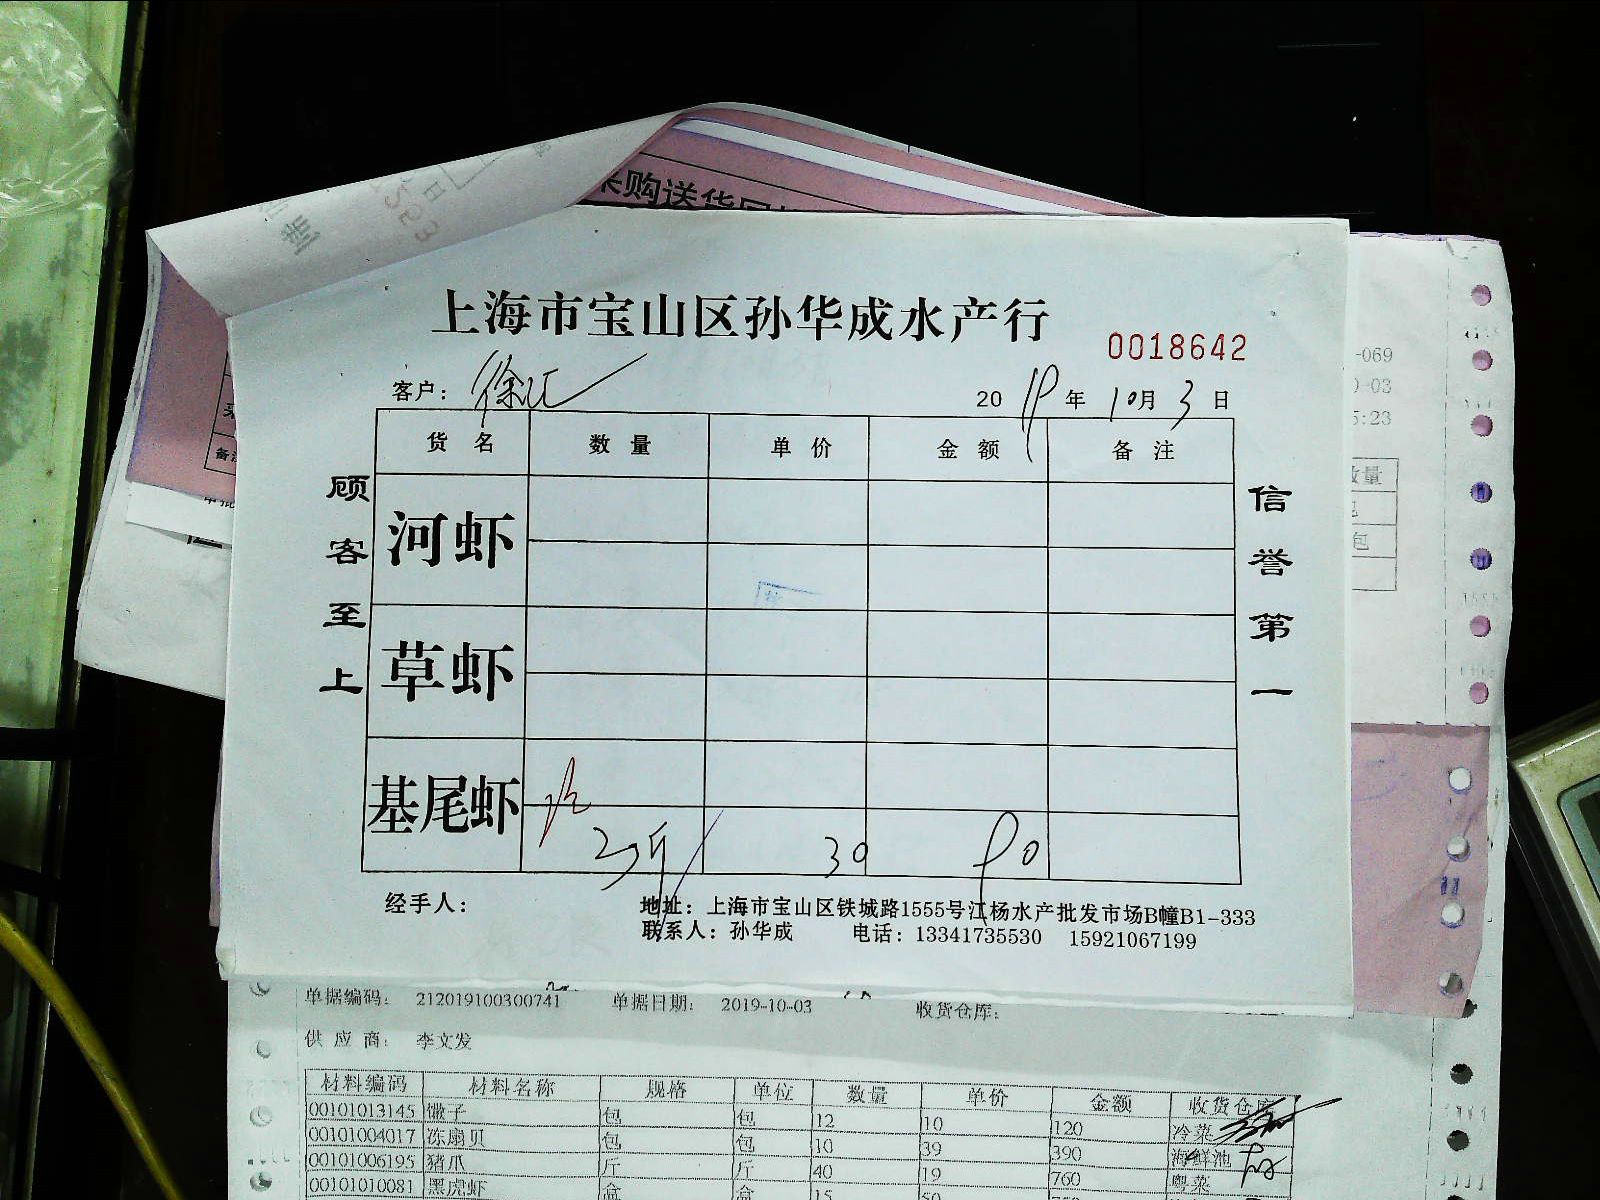 采购送货
上海市宝山区孙华成水产行
0018642
客户：徐汇 2019年10月3日
货名 数量 单价 金额 备注
顾客至上
河虾
草虾
基尾虾
3斤 30 90
信誉第一
经手人：
地址：上海市宝山区铁城路1555号江杨水产批发市场B幢B1-333
联系人：孙华成 电话：13341735530 15921067199
-069
-03
5:23
数量
包
单据编码： 212019100300741 单据日期： 2019-10-03 收货仓库：
供应商： 李文发
材料编码 材料名称 规格 单位 数量 单价 金额 收货仓库
00101013145 馓子 包 包 12 10 120 冷菜
00101004017 冻扇贝 包 包 10 39 390 海鲜池
00101006195 猪爪 斤 斤 40 19 760 粤菜
00101010081 黑虎虾 盒 盒 15 50